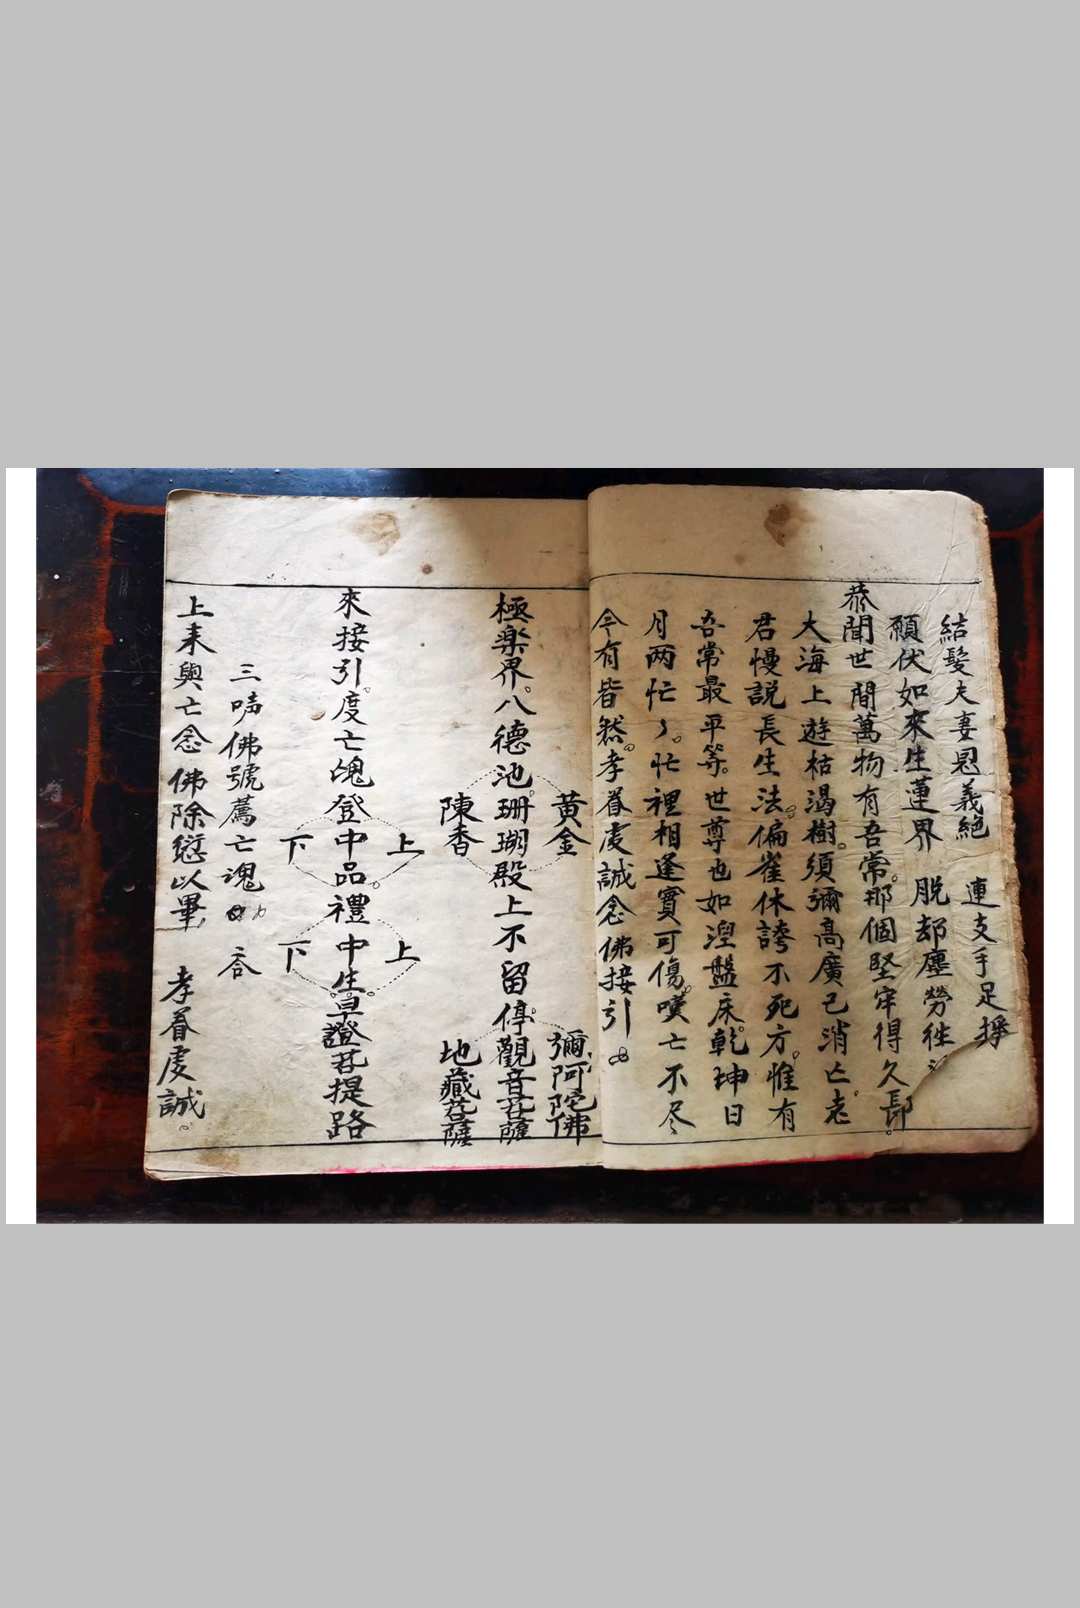 結髮夫妻恩義絕 連支手足掙
願伏如來生蓮界 脫却塵勞徃
恭聞世間萬物有吾常。那個堅牢得久長。
大海上遊枯渴樹。須彌高廣已消亡。老
君慢説長生法。偏雀休誇不死方。惟有
吾常最平等。世尊也如湼盤床。乾坤日
月两忙々。忙裡相逢實可傷。嘆亡不尽
今有皆然。孝眷虔誠念佛接引
黃金 彌阿陀佛
極楽界。八德池。珊瑚殿上不留停。觀音菩薩
陳香 地藏菩薩
上 上
來接引。度亡魂登中品。禮中生。早證菩提路
下 下
三啼佛號薦亡魂
上来與亡念佛除愆以畢 孝眷虔誠。